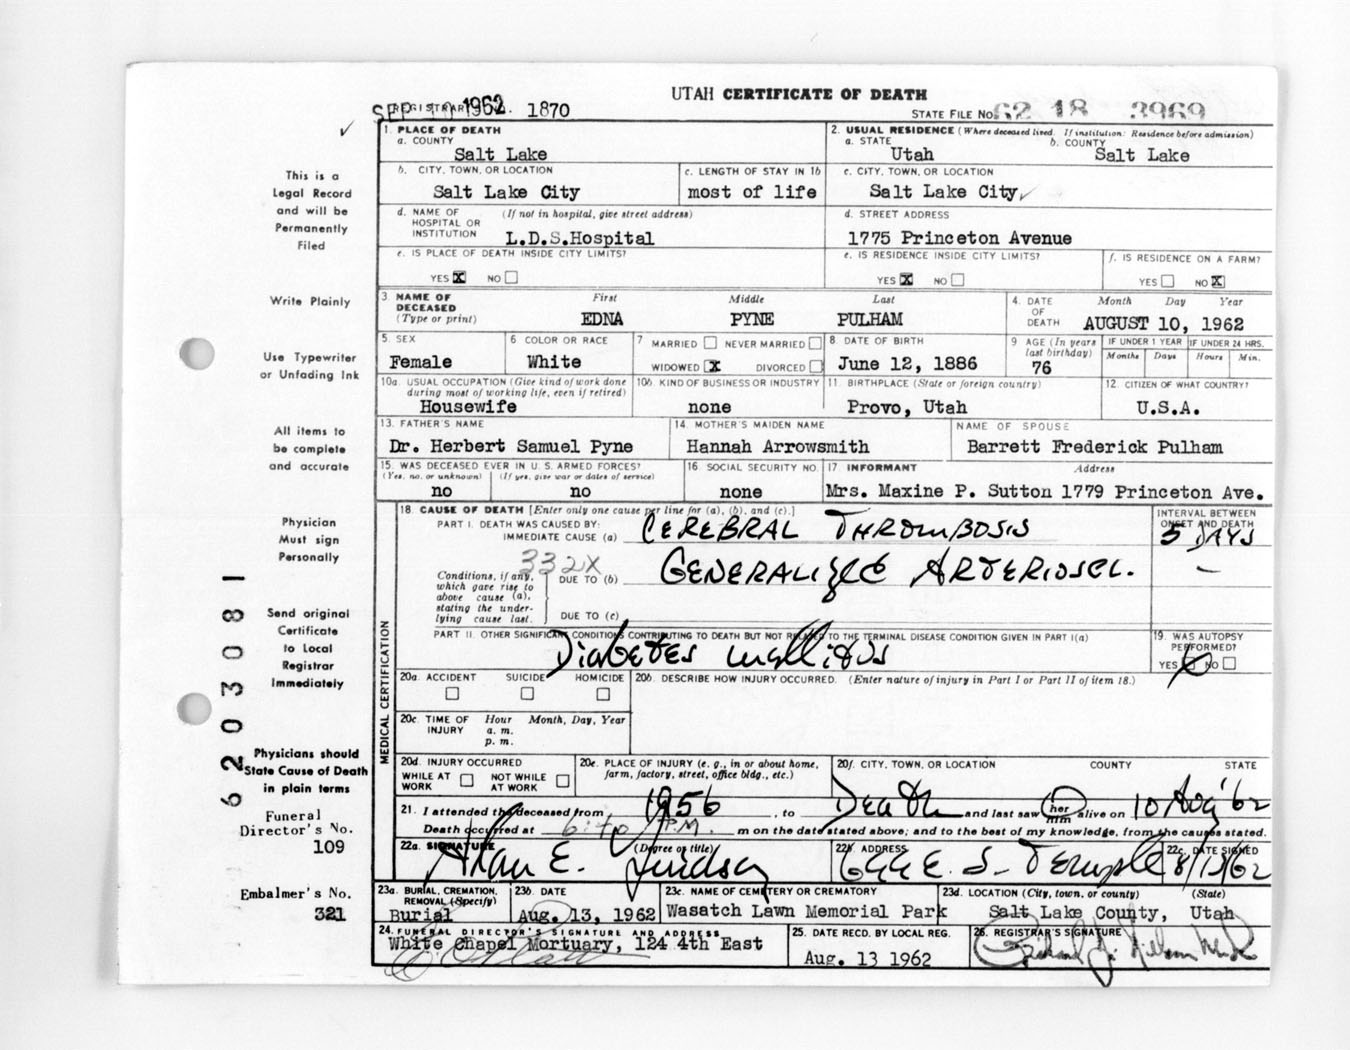 UTAH CERTIFICATE OF DEATH
SEP 1962 REGISTRAR'S NO. 1870
STATE FILE NO. 62 18 3969
1. PLACE OF DEATH
a. COUNTY
Salt Lake
2. USUAL RESIDENCE (Where deceased lived. If institution: Residence before admission)
a. STATE b. COUNTY
Utah Salt Lake
b. CITY, TOWN, OR LOCATION
Salt Lake City
c. LENGTH OF STAY IN 1b
most of life
c. CITY, TOWN, OR LOCATION
Salt Lake City
d. NAME OF HOSPITAL OR INSTITUTION (If not in hospital, give street address)
L.D.S.Hospital
d. STREET ADDRESS
1775 Princeton Avenue
e. IS PLACE OF DEATH INSIDE CITY LIMITS?
YES X NO
e. IS RESIDENCE INSIDE CITY LIMITS?
YES X NO
f. IS RESIDENCE ON A FARM?
YES NO X
3. NAME OF DECEASED (Type or print)
First Middle Last
EDNA PYNE PULHAM
4. DATE OF DEATH
Month Day Year
AUGUST 10, 1962
5. SEX
Female
6. COLOR OR RACE
White
7 MARRIED NEVER MARRIED
WIDOWED X DIVORCED
8. DATE OF BIRTH
June 12, 1886
9 AGE (In years last birthday)
76
IF UNDER 1 YEAR
Months Days
IF UNDER 24 HRS.
Hours Min.
10a. USUAL OCCUPATION (Give kind of work done during most of working life, even if retired)
Housewife
10b. KIND OF BUSINESS OR INDUSTRY
none
11. BIRTHPLACE (State or foreign country)
Provo, Utah
12. CITIZEN OF WHAT COUNTRY?
U.S.A.
13. FATHER'S NAME
Dr. Herbert Samuel Pyne
14. MOTHER'S MAIDEN NAME
Hannah Arrowsmith
NAME OF SPOUSE
Barrett Frederick Pulham
15. WAS DECEASED EVER IN U. S. ARMED FORCES?
(Yes, no, or unknown) (If yes, give war or dates of service)
no no
16. SOCIAL SECURITY NO.
none
17. INFORMANT Address
Mrs. Maxine P. Sutton 1779 Princeton Ave.
18. CAUSE OF DEATH [Enter only one cause per line for (a), (b), and (c).]
PART I. DEATH WAS CAUSED BY:
IMMEDIATE CAUSE (a) CEREBRAL THROMBOSIS
INTERVAL BETWEEN ONSET AND DEATH
5 DAYS
332X
Conditions, if any, which gave rise to above cause (a), stating the underlying cause last.
DUE TO (b) GENERALIZED ARTERIOSCL. –
DUE TO (c)
PART II. OTHER SIGNIFICANT CONDITIONS CONTRIBUTING TO DEATH BUT NOT RELATED TO THE TERMINAL DISEASE CONDITION GIVEN IN PART I(a)
Diabetes mellitus
19. WAS AUTOPSY PERFORMED?
YES NO
MEDICAL CERTIFICATION
20a. ACCIDENT SUICIDE HOMICIDE
20b. DESCRIBE HOW INJURY OCCURRED. (Enter nature of injury in Part I or Part II of item 18.)
20c. TIME OF INJURY Hour Month, Day, Year
a. m.
p. m.
20d. INJURY OCCURRED
WHILE AT WORK NOT WHILE AT WORK
20e. PLACE OF INJURY (e. g., in or about home, farm, factory, street, office bldg., etc.)
20f. CITY, TOWN, OR LOCATION COUNTY STATE
21. I attended the deceased from 1956, to Death and last saw her him alive on 10 Aug '62
Death occurred at 6:40 P.M. m on the date stated above; and to the best of my knowledge, from the causes stated.
22a. SIGNATURE (Degree or title)
Alan E. Lindsay
22b. ADDRESS
E. S. Temple
22c. DATE SIGNED
8/13/62
23a. BURIAL, CREMATION, REMOVAL (Specify)
Burial
23b. DATE
Aug. 13, 1962
23c. NAME OF CEMETERY OR CREMATORY
Wasatch Lawn Memorial Park
23d. LOCATION (City, town, or county) (State)
Salt Lake County, Utah
24. FUNERAL DIRECTOR'S SIGNATURE AND ADDRESS
White Chapel Mortuary, 124 4th East
25. DATE RECD. BY LOCAL REG.
Aug. 13 1962
26. REGISTRAR'S SIGNATURE
This is a
Legal Record
and will be
Permanently
Filed
Write Plainly
Use Typewriter
or Unfading Ink
All items to
be complete
and accurate
Physician
Must sign
Personally
Send original
Certificate
to Local
Registrar
Immediately
Physicians should
State Cause of Death
in plain terms
Funeral
Director's No.
109
Embalmer's No.
321
62030081